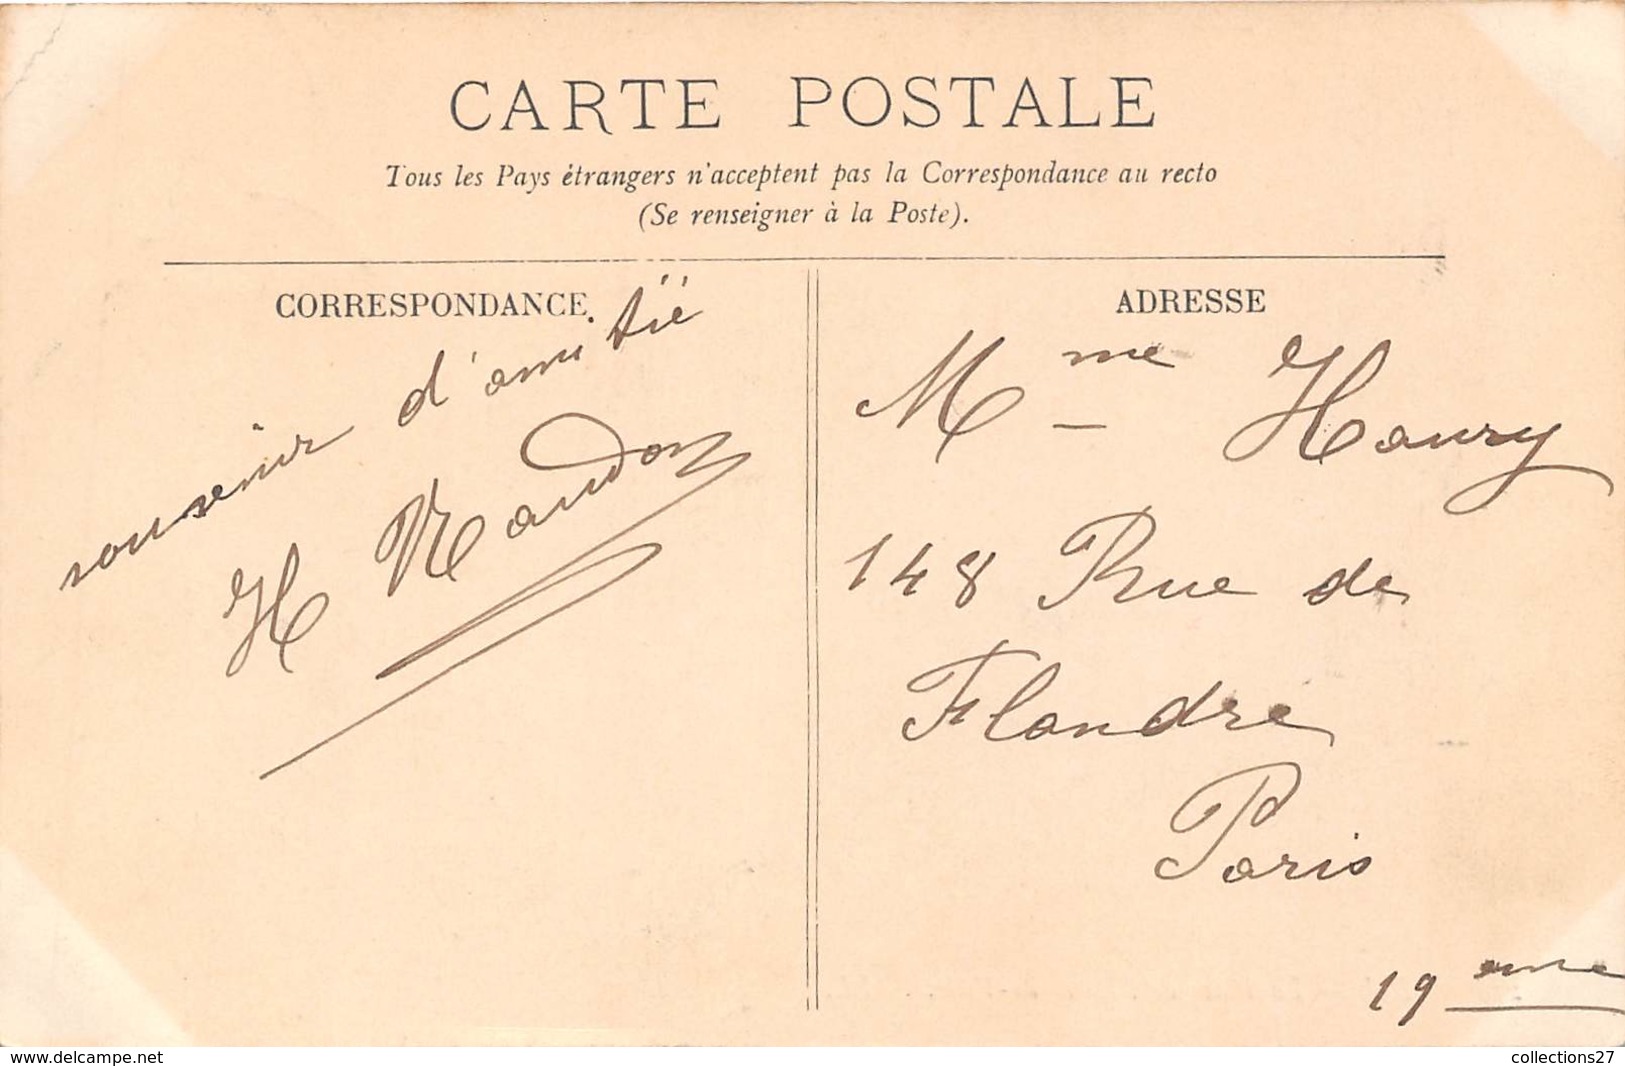 CARTE POSTALE
Tous les Pays étrangers n'acceptent pas la Correspondance au recto
(Se renseigner à la Poste).
CORRESPONDANCE.
souvenir d'amitié
H Naudon
ADRESSE
Mme Houry
148 Rue de
Flandre
Paris
19eme
www.delcampe.net
collections27